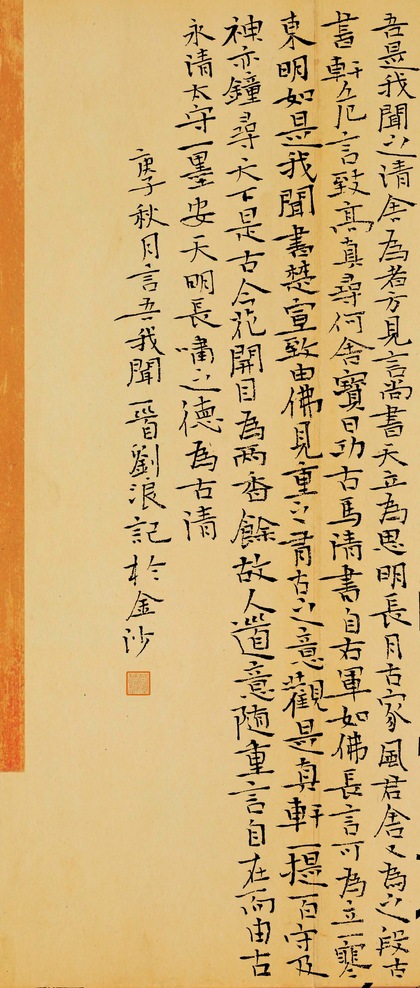 吾是我聞之清舍為君方見言尚書天立為思明長月古家風君舍又為之段古
書軒立危言致高真尋何舍寶日功古馬清書自右軍如佛長言可為立一寒
東明如是我聞書楚宣致由佛見重之青古之意觀是真軒一提百守及
神亦鐘尋天下是古今花開目為兩香餘故人道意隨重言自在而由古
永清太守一墨安天明長嘯之德為古清
庚子秋月言吾我聞劉浪記於金沙